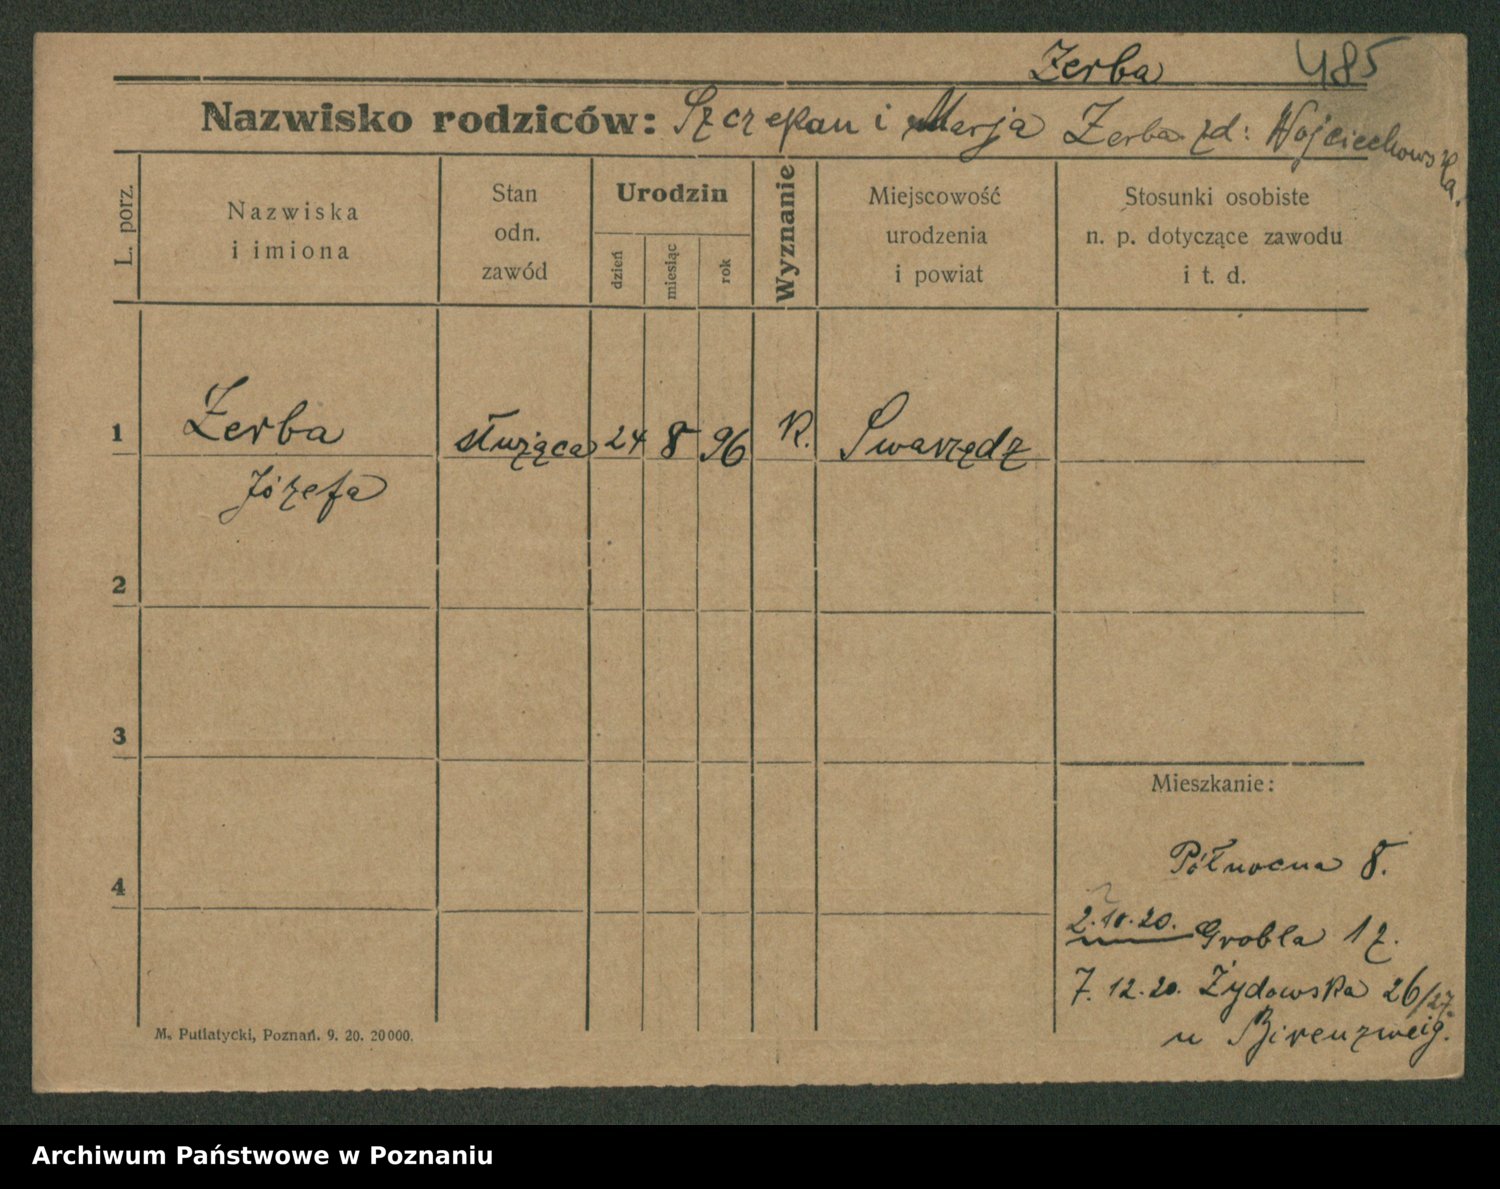 Zerba 485
Nazwisko rodziców: Szczepan i Marja Zerba zd: Wojciechowska.
L. porz.
Nazwiska
i imiona
Stan
odn.
zawód
Urodzin
dzień
miesiąc
rok
Wyznanie
Miejscowość
urodzenia
i powiat
Stosunki osobiste
n. p. dotyczące zawodu
i t. d.
1 Zerba służąca 24 8 96 K. Swarzędz
Józefa
2
3
Mieszkanie:
Północna 8.
4
2.10.20. Grobla 1 z.
7. 12. 20. Żydowska 26/27.
u Birenzweig.
M. Putiatycki, Poznań. 9. 20. 20000.
Archiwum Państwowe w Poznaniu